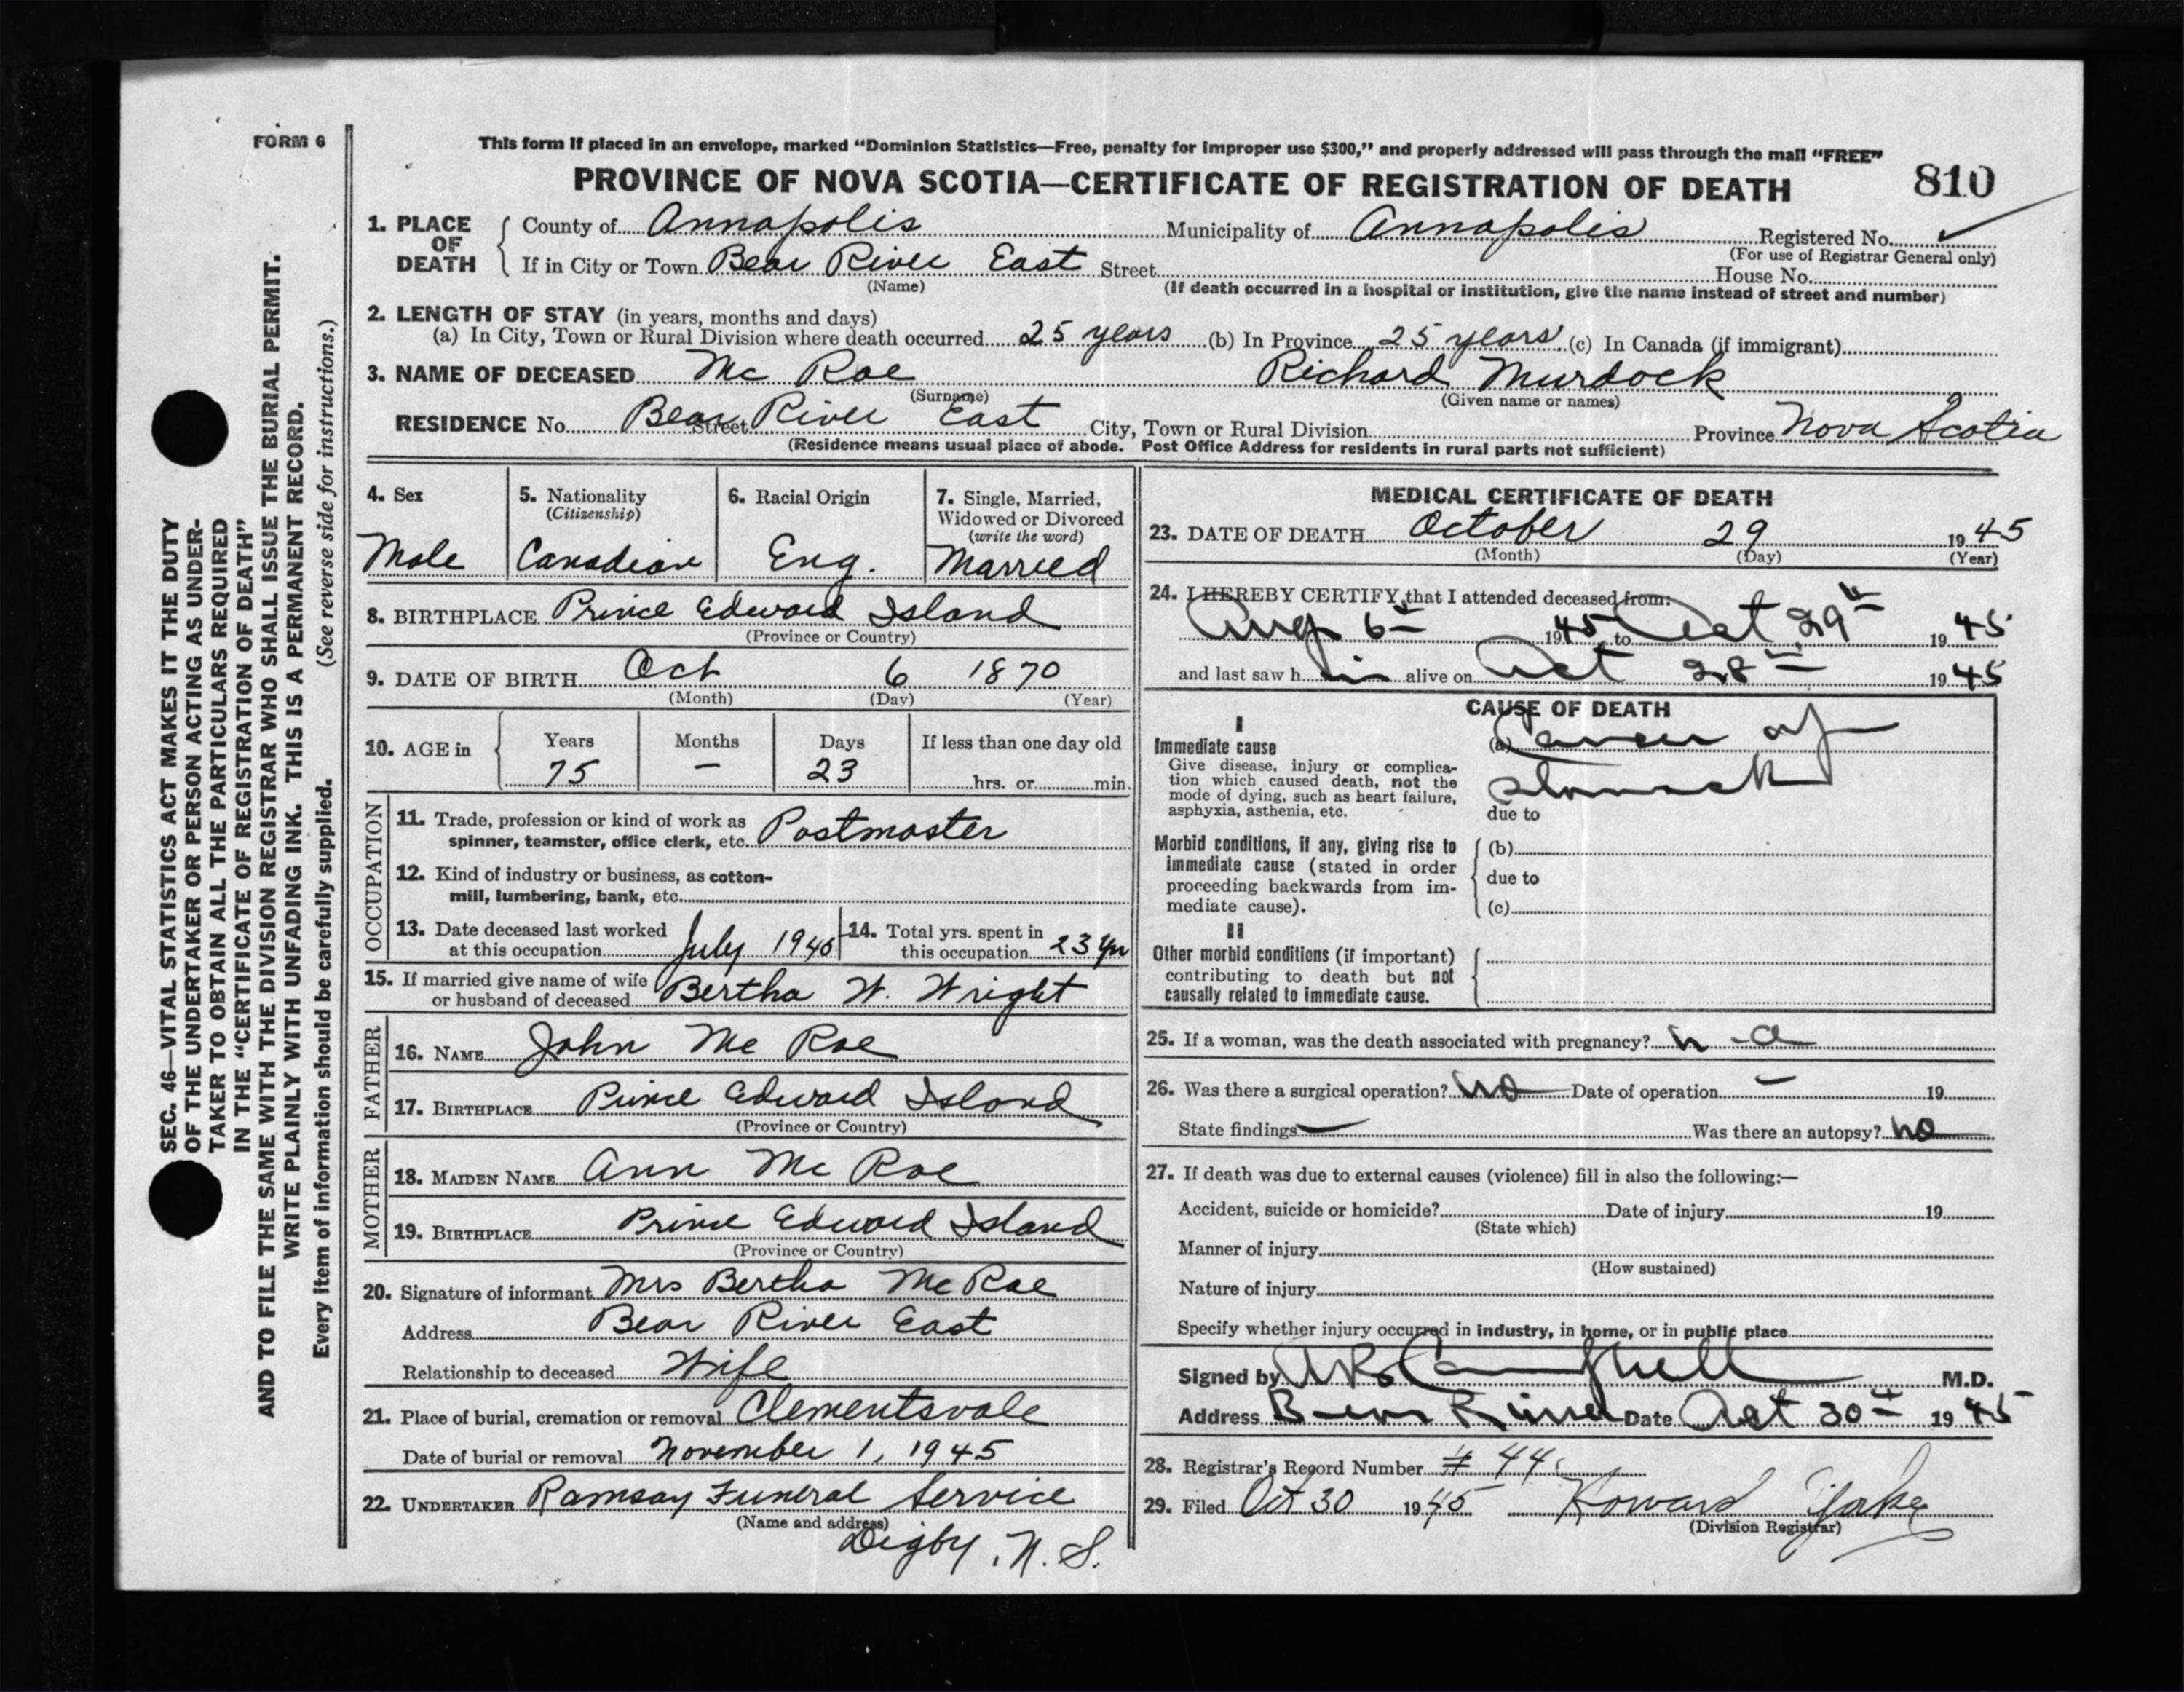 FORM 6
This form if placed in an envelope, marked “Dominion Statistics—Free, penalty for improper use $300,” and properly addressed will pass through the mail “FREE”
PROVINCE OF NOVA SCOTIA—CERTIFICATE OF REGISTRATION OF DEATH 810
1. PLACE OF DEATH
County of Annapolis Municipality of Annapolis Registered No. ✓
(For use of Registrar General only)
If in City or Town Bear River East Street House No.
(Name) (If death occurred in a hospital or institution, give the name instead of street and number)
2. LENGTH OF STAY (in years, months and days)
(a) In City, Town or Rural Division where death occurred 25 years (b) In Province 25 years (c) In Canada (if immigrant)
3. NAME OF DECEASED Mc Rae Richard Murdock
(Surname) (Given name or names)
RESIDENCE No. Bear River East Street City, Town or Rural Division Province Nova Scotia
(Residence means usual place of abode. Post Office Address for residents in rural parts not sufficient)
4. Sex
Male
5. Nationality
(Citizenship)
Canadian
6. Racial Origin
Eng.
7. Single, Married,
Widowed or Divorced
(write the word)
Married
8. BIRTHPLACE Prince Edward Island
(Province or Country)
9. DATE OF BIRTH Oct 6 1870
(Month) (Day) (Year)
10. AGE in Years Months Days If less than one day old
75 — 23 hrs. or min.
OCCUPATION
11. Trade, profession or kind of work as
spinner, teamster, office clerk, etc. Postmaster
12. Kind of industry or business, as cotton-
mill, lumbering, bank, etc.
13. Date deceased last worked
at this occupation July 1945
14. Total yrs. spent in
this occupation 23 yrs
15. If married give name of wife
or husband of deceased Bertha W. Wright
FATHER
16. NAME John Mc Rae
17. BIRTHPLACE Prince Edward Island
(Province or Country)
MOTHER
18. MAIDEN NAME Ann Mc Rae
19. BIRTHPLACE Prince Edward Island
(Province or Country)
20. Signature of informant Mrs Bertha McRae
Address Bear River East
Relationship to deceased Wife
21. Place of burial, cremation or removal Clementsvale
Date of burial or removal November 1, 1945
22. UNDERTAKER Ramsay Funeral Service
(Name and address)
Digby, N. S.
MEDICAL CERTIFICATE OF DEATH
23. DATE OF DEATH October 29 1945
(Month) (Day) (Year)
24. I HEREBY CERTIFY that I attended deceased from:
Aug 6th 1945 to Oct 29th 1945
and last saw him alive on Oct 28th 1945
CAUSE OF DEATH
I
Immediate cause
Give disease, injury or complica-
tion which caused death, not the
mode of dying, such as heart failure,
asphyxia, asthenia, etc.
(a) Cancer of
stomach
due to
Morbid conditions, if any, giving rise to
immediate cause (stated in order
proceeding backwards from im-
mediate cause).
(b)
due to
(c)
II
Other morbid conditions (if important)
contributing to death but not
causally related to immediate cause.
25. If a woman, was the death associated with pregnancy?
26. Was there a surgical operation? no Date of operation — 19
State findings — Was there an autopsy? no
27. If death was due to external causes (violence) fill in also the following:—
Accident, suicide or homicide? Date of injury 19
(State which)
Manner of injury
(How sustained)
Nature of injury
Specify whether injury occurred in industry, in home, or in public place
Signed by Campbell M.D.
Address Bear River Date Oct 30th 1945
28. Registrar's Record Number # 44
29. Filed Oct 30 1945 Howard
(Division Registrar)
SEC. 46—VITAL STATISTICS ACT MAKES IT THE DUTY
OF THE UNDERTAKER OR PERSON ACTING AS UNDER-
TAKER TO OBTAIN ALL THE PARTICULARS REQUIRED
IN THE “CERTIFICATE OF REGISTRATION OF DEATH”
AND TO FILE THE SAME WITH THE DIVISION REGISTRAR WHO SHALL ISSUE THE BURIAL PERMIT.
WRITE PLAINLY WITH UNFADING INK. THIS IS A PERMANENT RECORD.
Every item of information should be carefully supplied. (See reverse side for instructions.)